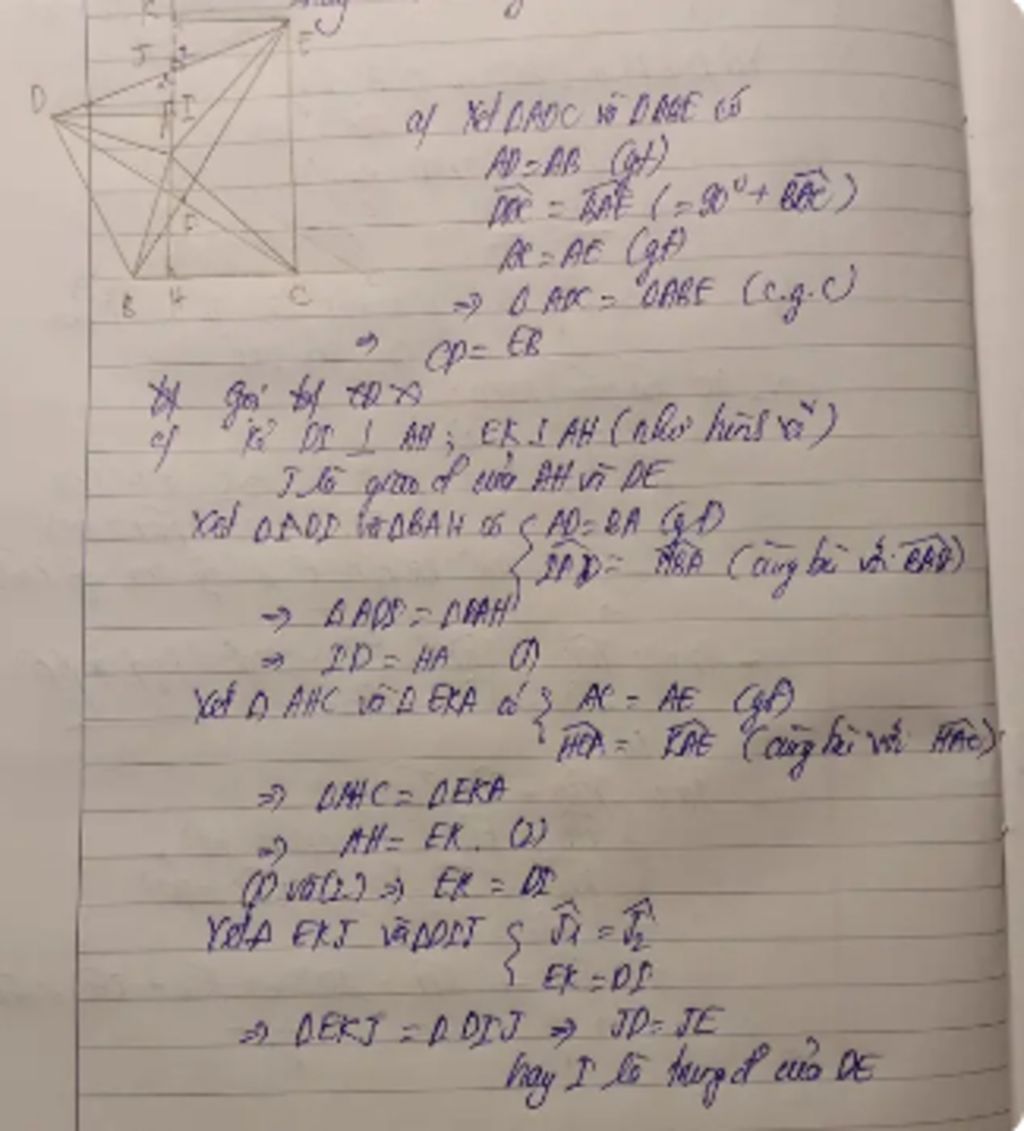 K
J
E
D
I
A
F
B H C
a/ Xét ΔADC và ΔABE có
AD = AB (gt)
DAC = BAE (= 90° + BAC)
AC = AE (gt)
⇒ ΔADC = ΔABE (c.g.c)
⇒ CD = EB
c/ Kẻ DI ⊥ AH; EK ⊥ AH (như hình vẽ)
J là giao đ của AH và DE
Xét ΔADI và ΔBAH có { AD = BA (gt)
IAD = HBA (cùng bù với BAH)
⇒ ΔADI = ΔBAH
⇒ ID = HA (1)
Xét Δ AHC và Δ EKA có { AC = AE (gt)
HCA = KAE (cùng bù với HAC)
⇒ ΔAHC = ΔEKA
⇒ AH = EK. (2)
(1) và (2) ⇒ EK = DI
Xét Δ EKJ và ΔDIJ { J1 = J2
EK = DI
⇒ ΔEKJ = Δ DIJ ⇒ JD = JE
hay I là trung đ của DE